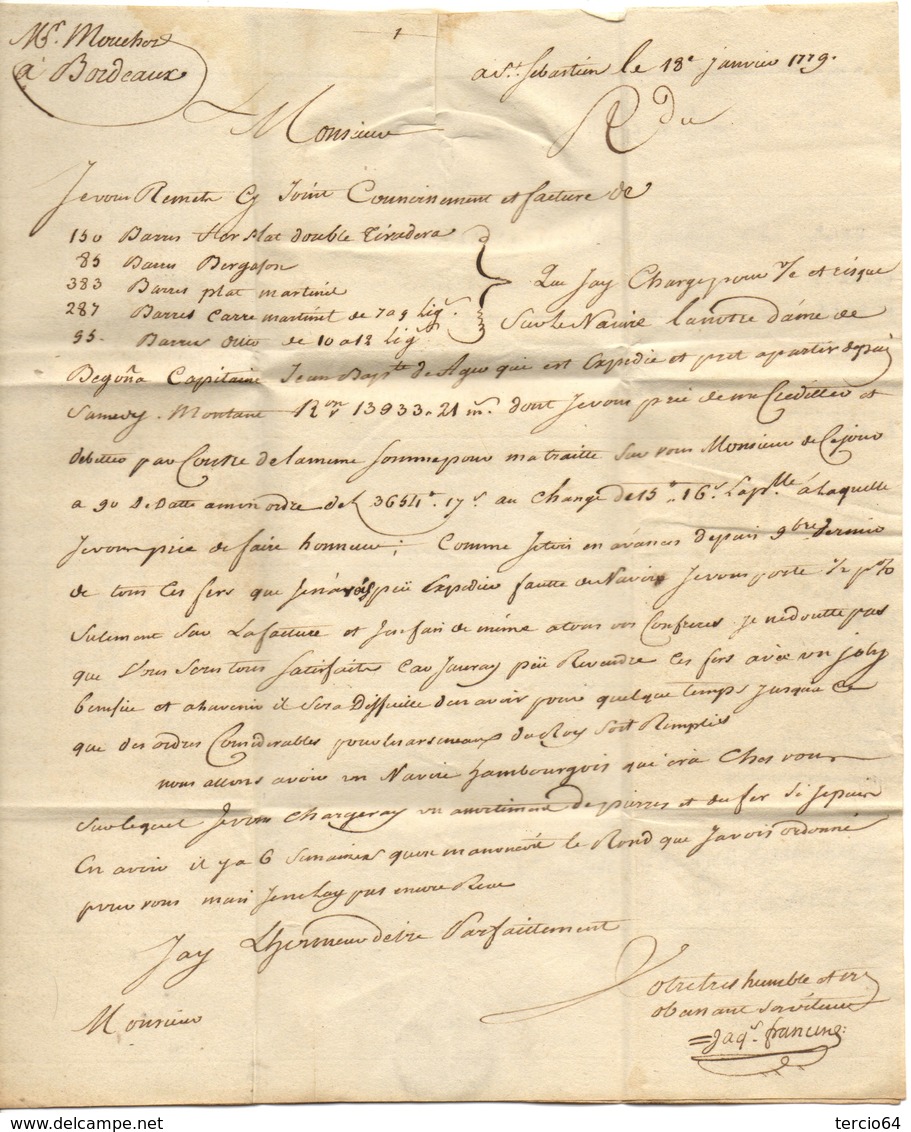 Mr. Mouchon
à Bordeaux
1
a St. Sebastien le 18e janvier 1779.
Rdue
Monsieur
Je vous Remets Cy Joint Connoissement et facture de
150 Barres fer plat double Tiradera
85 Barres Bergason
383 Barres plat martinet
287 Barres Carre martinet de 7 a 9 lig.
95. Barres ditto de 10 a 12 lig.
Que Jay Chargé pour v/c et risque
Sur le Navire la notre dame de
Begoña Capitaine Jean Bapte de qui est Expedié et pret a partir depui
Samedy. Montant Rvon 13933.. 21 ms. dont Je vous prie de me Crediter et
debitter par Contre de la meme Somme pour ma traitte Sur vous Monsieur de Ce jour
a 90 de Datte a mon ordre de 3654 .. 17 s. au Change de 15 .. 16 s. La plle à Laquelle
Je vous prie de faire honneur; Comme Jetois en avances depuis 9bre dernier
de tous Ces fers que Je n'avois peü Expedier faute de Navire Je vous porte ½ p%
Sulement Sur La facture et J'en fais de même a tous vos Confreres. Je ne doutte pas
que Vous Serés tous Satisfaits Car Jauray peü Revendre Ces fers avec un joly
benefice et a lavenir il Sera Difficille den avoir pour quelque temps Jusqua Ce
que des ordres Considerables pour les arsenaux du Roy Soit Remplis
nous allons avoir un Navire hambourgois qui ira Chés vous
Sur lequel Je vous Chargeray un assortiment de pierres et du fer Si Je puis
En avoir il y a 6 Semaines quon m'annonce le Rond que Javois ordonné
pour vous mais Je ne lay pas encore Reçu
Jay Lhonneur detre Parfaittement
Monsieur
Votre tres humble et tres
obeissant Serviteur
Jaqs. francine
tercio64